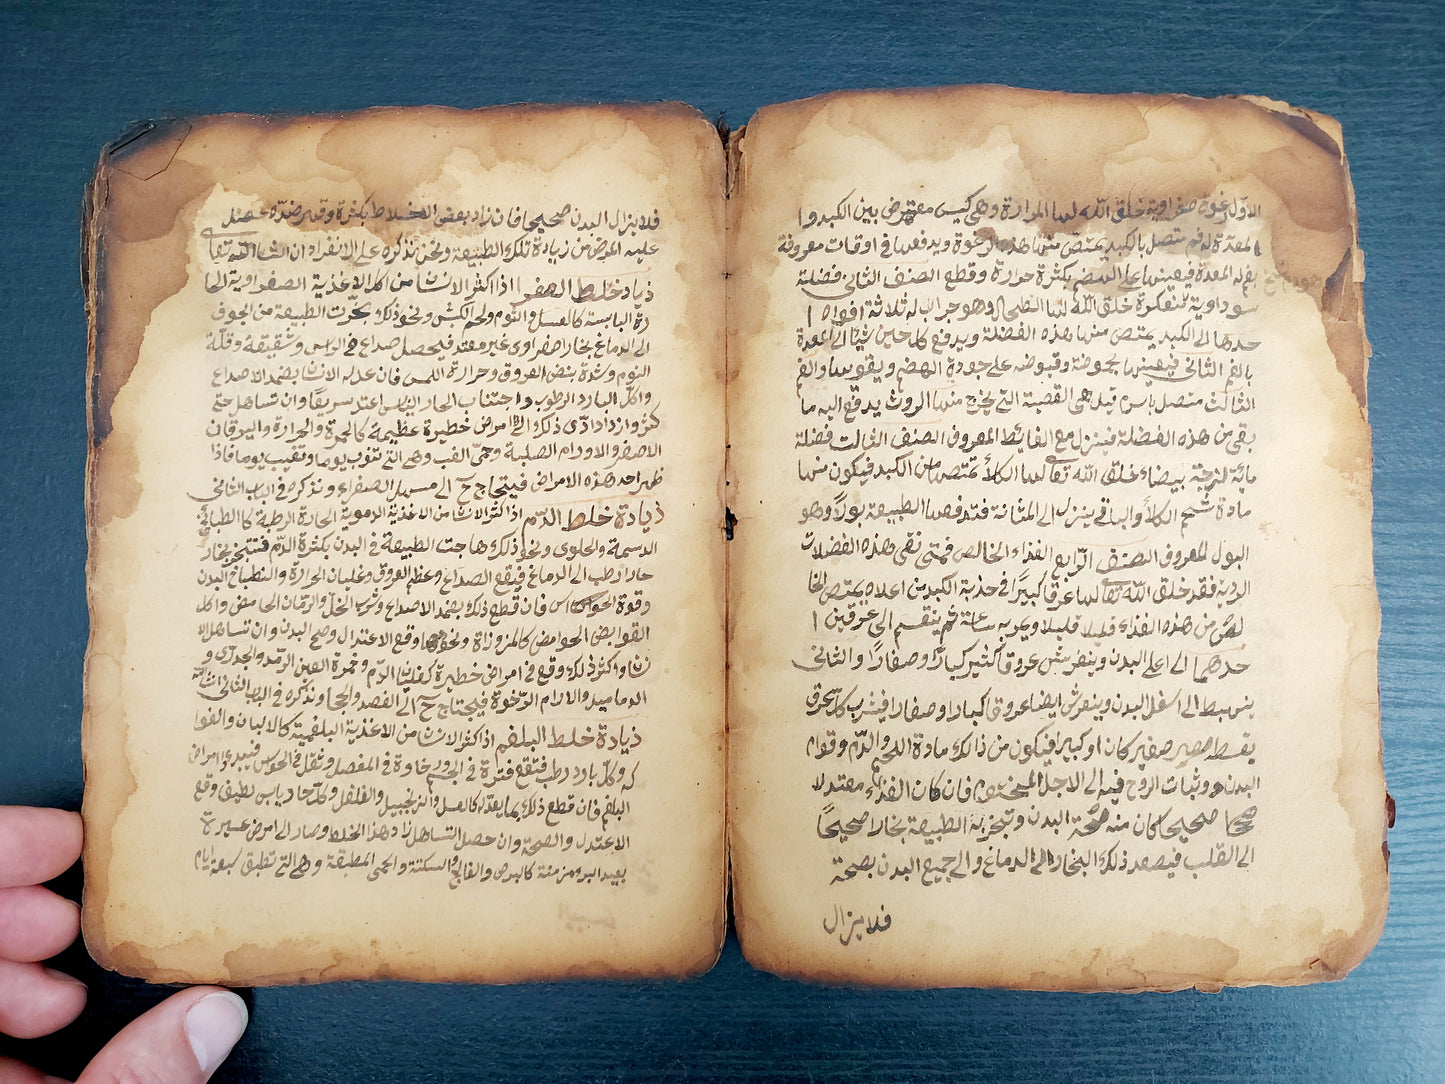 الاول رغوة صفراوية خلق الله لها المرارة وهي كيس معترض بين الكبد وا
لمعدة له فم متصل بالكبد يمتص منها هذه الرغوة ويدفعها في اوقات معروفة
بفم المعدة فيعينها على الهضم بكثرة حرارة وقطع الصنف الثاني فضلة
سوداوية متعكرة خلق الله لها الطحال وهو جراب له ثلاثة افواه ا
حدها الى الكبد يمتص منها هذه الفضلة ويدفع كل حين شيئا الى المعدة
بالفم الثاني فيعينها بحموضة وقبوضه على جودة الهضم ويقويها والفم
الثالث متصل باسرم قبل هي القصبة التي يخرج منها الروث يدفع اليه ما
بقي من هذه الفضلة فينزل مع الغائط المعروف الصنف الثالث فضلة
مائية لزجة بيضاء خلق الله تعالى لها الكلا تمتصها من الكبد فيكون منها
مادة شحم الكلا والباقي ينزل الى المثانة فتدفعها الطبيعة بولا وهو
البول المعروف الصنف الرابع الغذاء الخالص فمتى نقي وهذه الفضلات
الردية فقد خلق الله تعالى لها عرقا كبيرا في حدبة الكبد من اعلاه يمتص الخا
لص من هذه الغذاء قليلا قليلا ويجربه ساعة ثم ينقسم الى عرقين ا
حدهما الى اعلى البدن وينفرش عروق كثير كبارا وصغارا والثاني
ينبسط الى اسفل البدن وينفرش ايضا عروقا كبارا وصغارا فيشرب كل عرق
بقسطه صغير كان او كبيرا فيكون من ذالك مادة اللحم والدم وقوام
البدن وثبات الروح فيه الى الاجل المحتوم فان كان الغذاء معتدلا
صحيحا كان منه صحة البدن وتبخر به الطبيعة بخارا صحيحا
الى القلب فيصعد ذلك البخار الى الدماغ والى جميع البدن بصحة
فلا يزال
فلا يزال البدن صحيحا فان زاد بعض الاخلاط بكثرة وقهر ضده حصل
عليه المرض من زيادة تلك الطبيعة ونحن نذكره على الانفراد ان شاء الله تعالى
زيادة خلط الصفرا اذا اكثر الانسان من اكل الاغذية الصفراوية الحا
رة اليابسة كالعسل والثوم ولحم الكبش ونحو ذلك بخرت الطبيعة من الجوف
الى الدماغ بخارا صفراوي غير معتد فيحصل صداع في الراس وشقيقة وقلة
النوم وشدة نبض العروق وحرارة اللمس فان عدله الانسان بضمد الاصداع
واكل البارد الرطوب واجتناب الحار اليابس اعتدل سريعا وان تساهل حتى
كثر وازداد ادى ذلك الى امراض خطيرة عظيمة كالحمرة والحرارة واليرقان
الاصفر والاورام الصلبة وحمى الغب وهي التي تنوب يوما وتغيب يوما فاذا
ظهر احد هذه الامراض فيحتاج ح الى مسهل الصفراء ونذكره في الباب الثاني
زيادة خلط الدم اذا اكثر الانسان من الاغذية الدموية الحارة الرطبة كالطبائخ
الدسمة والحلوى ونحو ذلك هاجت الطبيعة في البدن بكثرة الدم فتتبخر بخار
حار رطب الى الدماغ فيقع الصداع وعظم العروق وغليان الحرارة وانطباخ البدن
وقوة الحواس فان قطع ذلك بضمد الاصداع وشرب الخل والرمان الحامض واكل
القوابض الحوامض كالمزوزاة ونحوها وقع الاعتدال وصح البدن وان تساهل الا
نسان واكثر ذلك وقع في امراض خطيرة كغليان الدم وحمرة العين الرمد والجدري و
الدماميد والاورام الرخوة فيحتاج ح الى الفصد والحجامة ونذكره في الباب الثاني
زيادة خلط البلغم اذا اكثر الانسان من الاغذية البلغمية كالالبان والفوا
كه وكل بارد رطب فتقع فترة في الجسم ورخاوة في المفصل وثقل في الحواس فيبدو امراض
البلغم فان قطع ذلك بما يعدله كالعسل والزنجبيل والفلفل وكل حار يابس لطيف وقع
الاعتدل والصحة وان حصل التساهل زاد هذا الخلط وصار الى امرض عسيرة
بعيد البرء مزمنة كالبرص والفالج والسكتة والحمى المطبقة وهي التي تطبق سبعة ايام